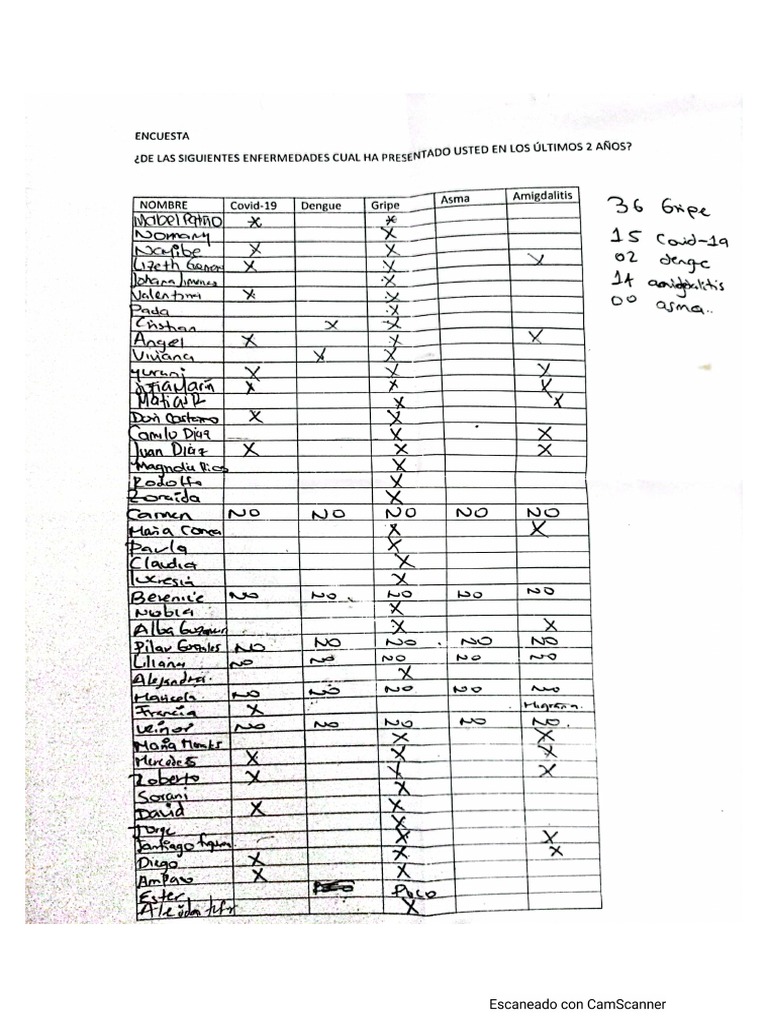 ENCUESTA
¿DE LAS SIGUIENTES ENFERMEDADES CUAL HA PRESENTADO USTED EN LOS ÚLTIMOS 2 AÑOS?
NOMBRE Covid-19 Dengue Gripe Asma Amigdalitis
Mabel Patiño X X
Nomary X
Nayibe X X
Lizeth X X X
Johana Jimenes X
Valentina X X
Paola X
Cristian X X
Angel X X X
Viviana X X
Yurani X X X
Sofia Marin X X X
Matias R X X
Don Castaño X X
Camilo Diaz X X
Juan Diaz X X X
Magnolia Rios X
Rodolfo X
Zoraida X
Carmen NO NO NO NO NO
Maria Correa X X
Paula X
Claudia X
lucresia X
Berenice NO NO NO NO NO
Nubia X
Alba X X
Pilar Gonzales NO NO NO NO NO
Liliana NO NO NO NO NO
Alejandra. X
Maricela NO NO NO NO NO
Francia X Migraña.
NO NO NO NO NO
Maria X X
Mercedes X X X
Roberto X X X
Sorani X
David X X
Jorge X
Santiago X X
Diego X X X
Amparo X X
Ester Poco
X
36 Gripe
15 Covid-19
02 denge
14 amigdalitis
00 asma..
Escaneado con CamScanner